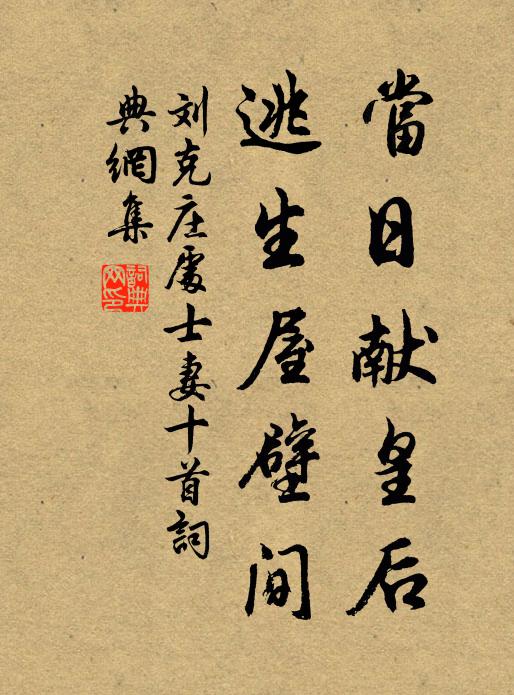 當日献皇后
逃生屋壁间
刘克庄處士妻十首詞
典網集
詞典
网印